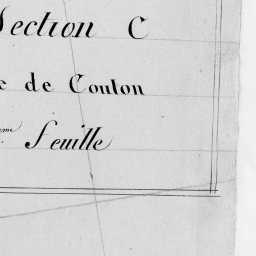 Section C
de Couton
eme Feuille